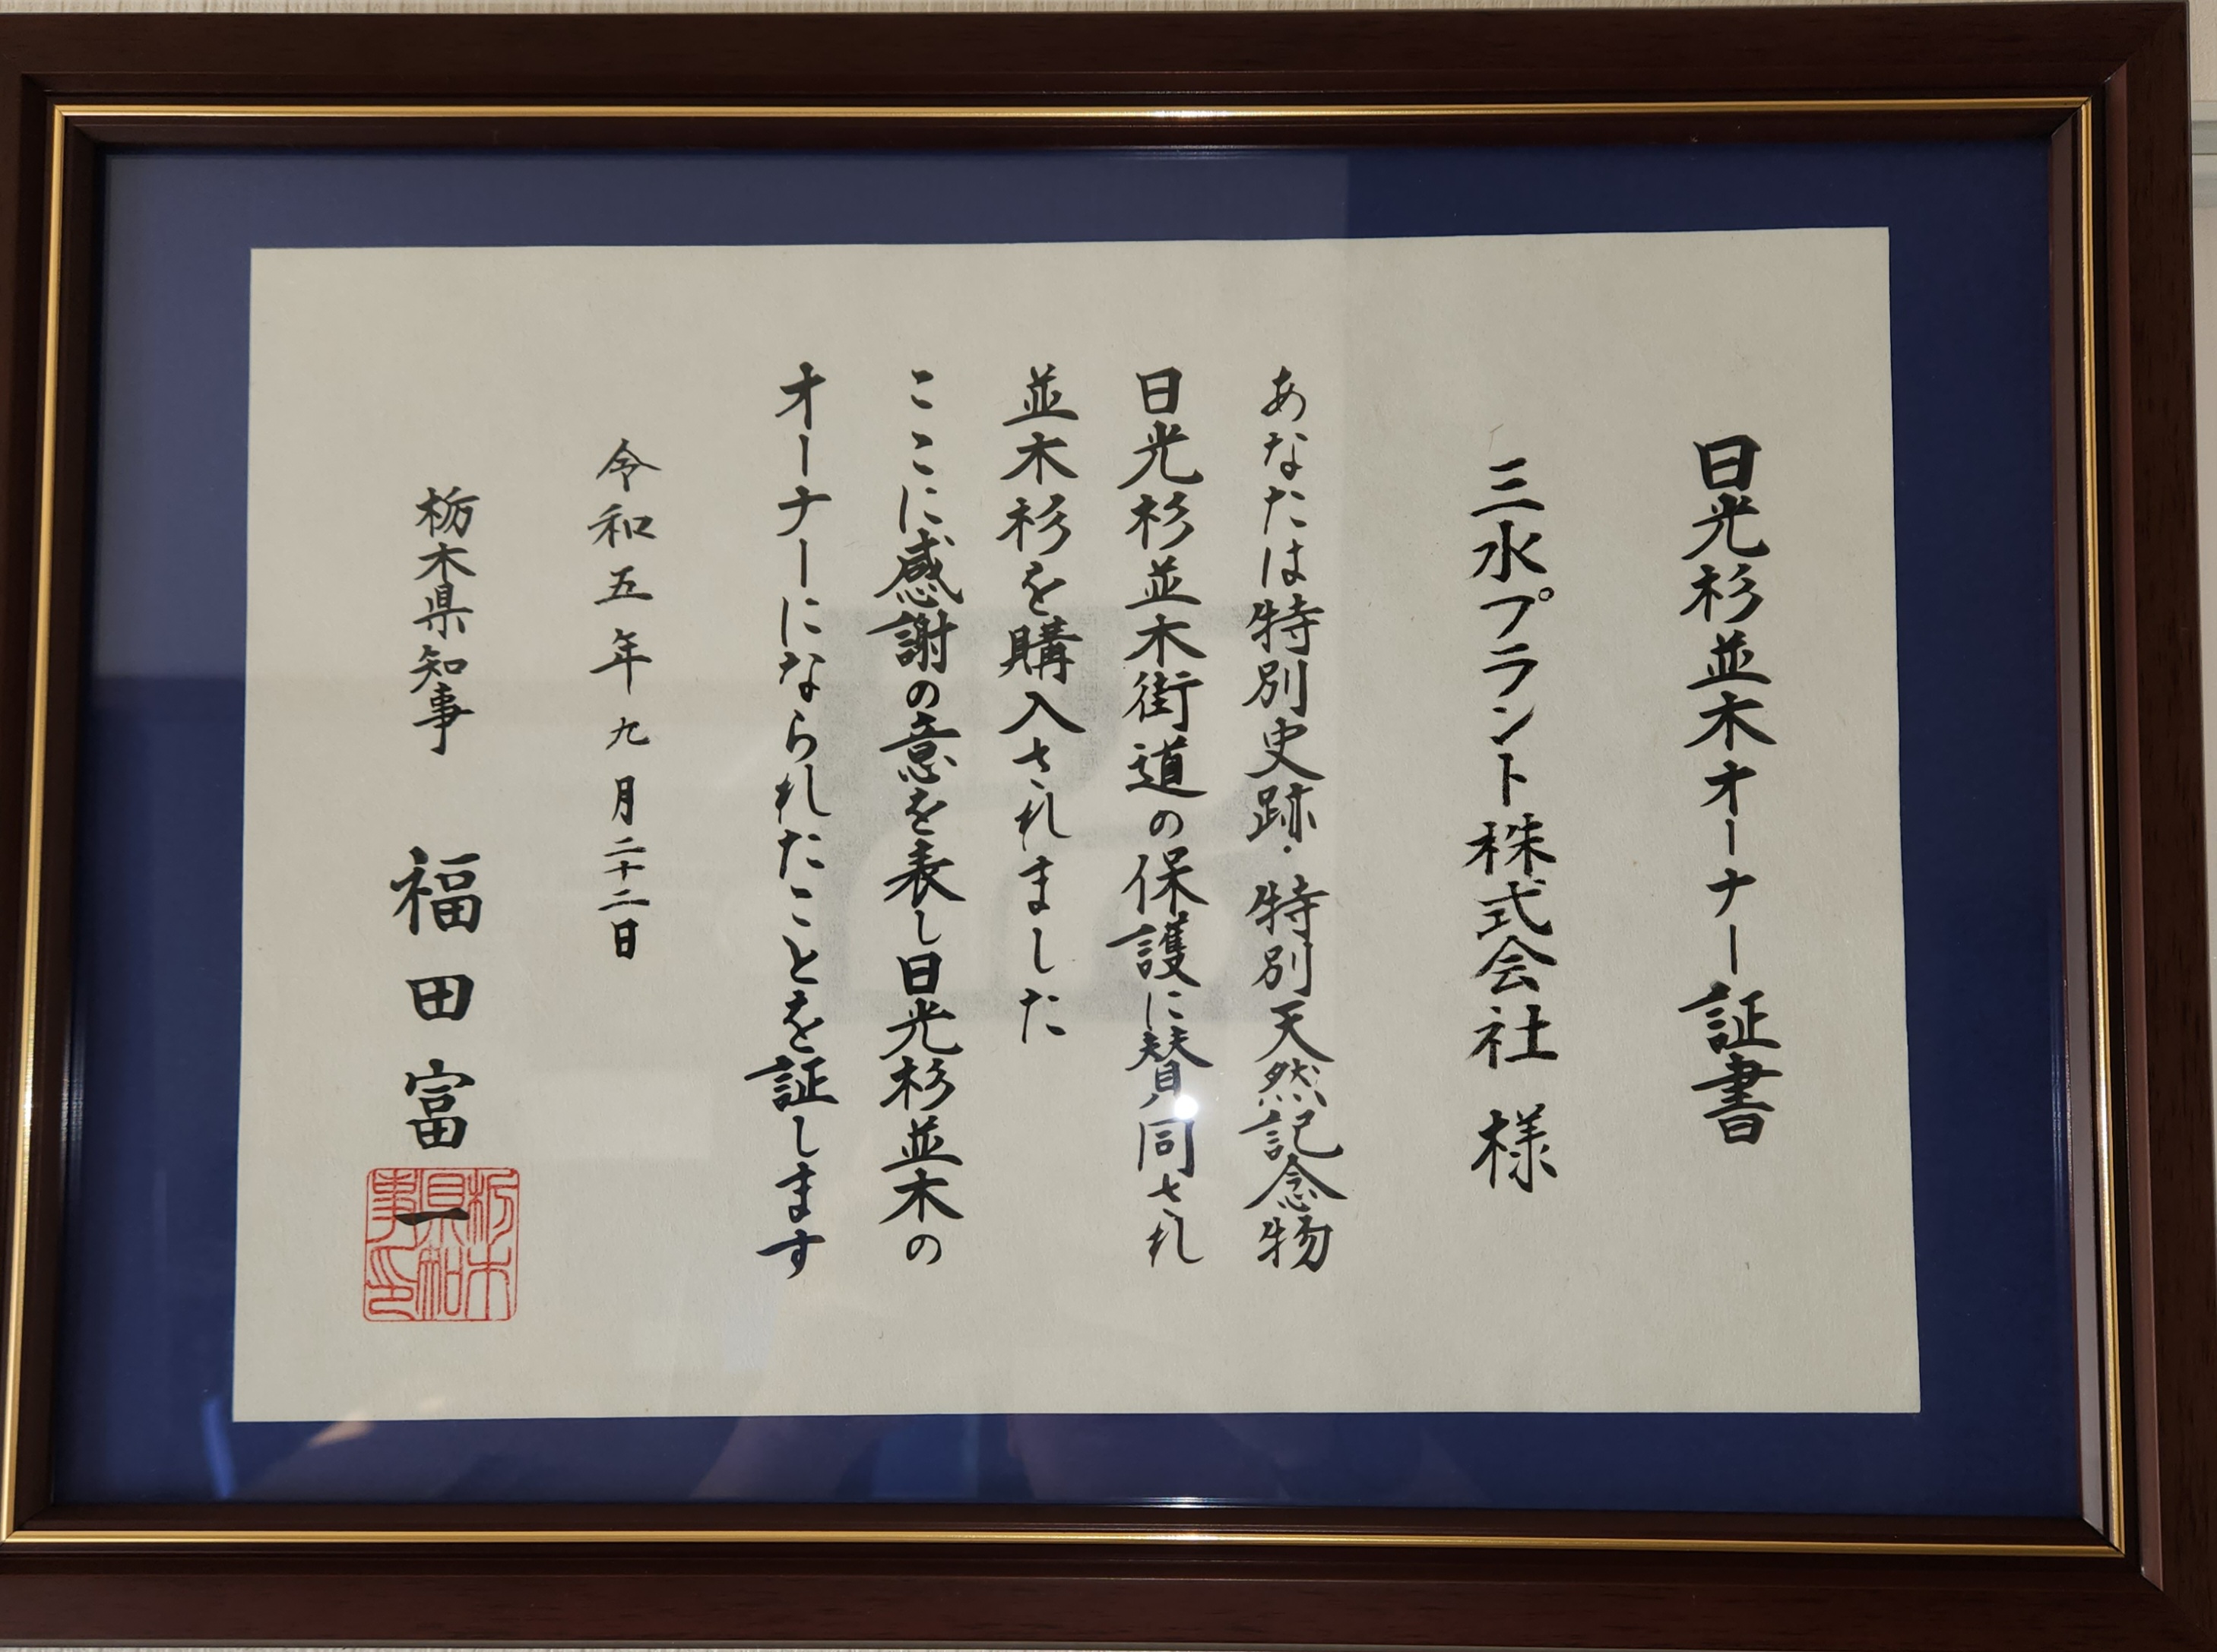 日光杉並木オーナー証書
三水プラント株式会社 様
あなたは特別史跡・特別天然記念物
日光杉並木街道の保護に賛同され
並木杉を購入されました
ここに感謝の意を表し日光杉並木の
オーナーになられたことを証します
令和五年九月二十二日
栃木県知事 福田富一
栃木県知事印